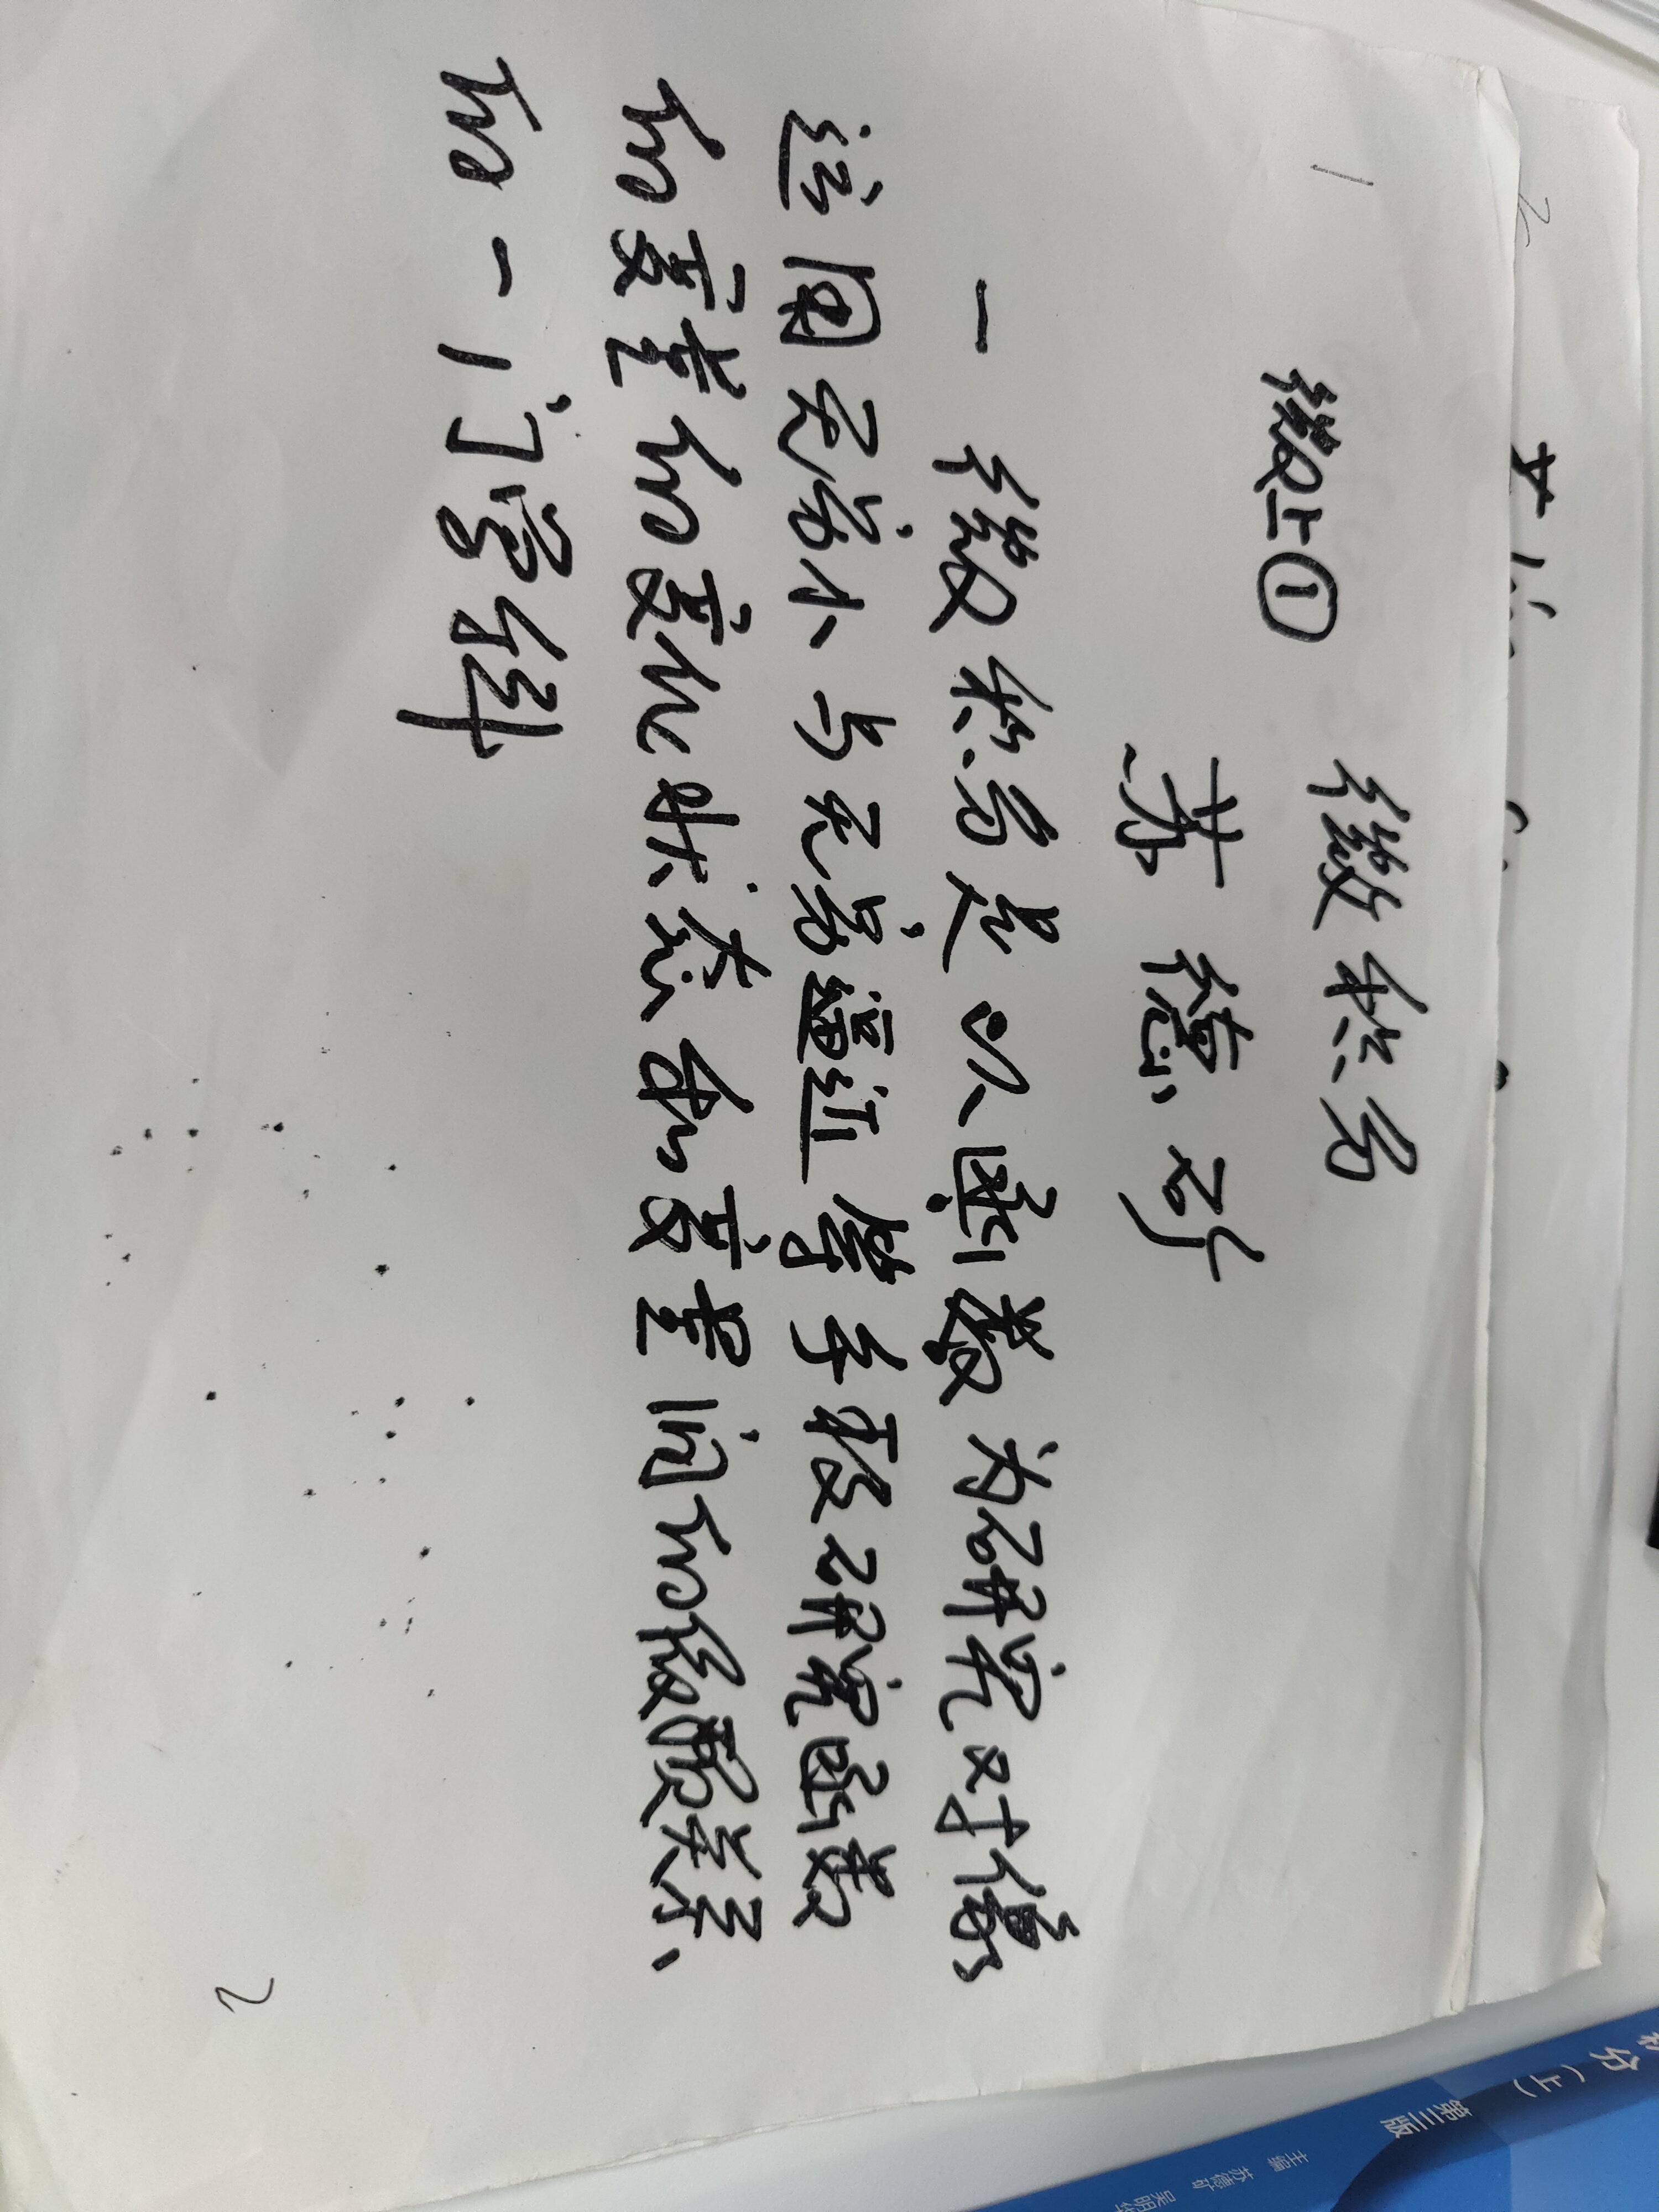 1
微上① 微积分
苏德矿
一 微积分是以函数为研究对像
运用无穷小与无穷逼近等手段研究函数
的变量的变化状态和变量间的依赖关系
的一门学科
2
2
分(上)
第三版
主编 苏德矿 吴明华